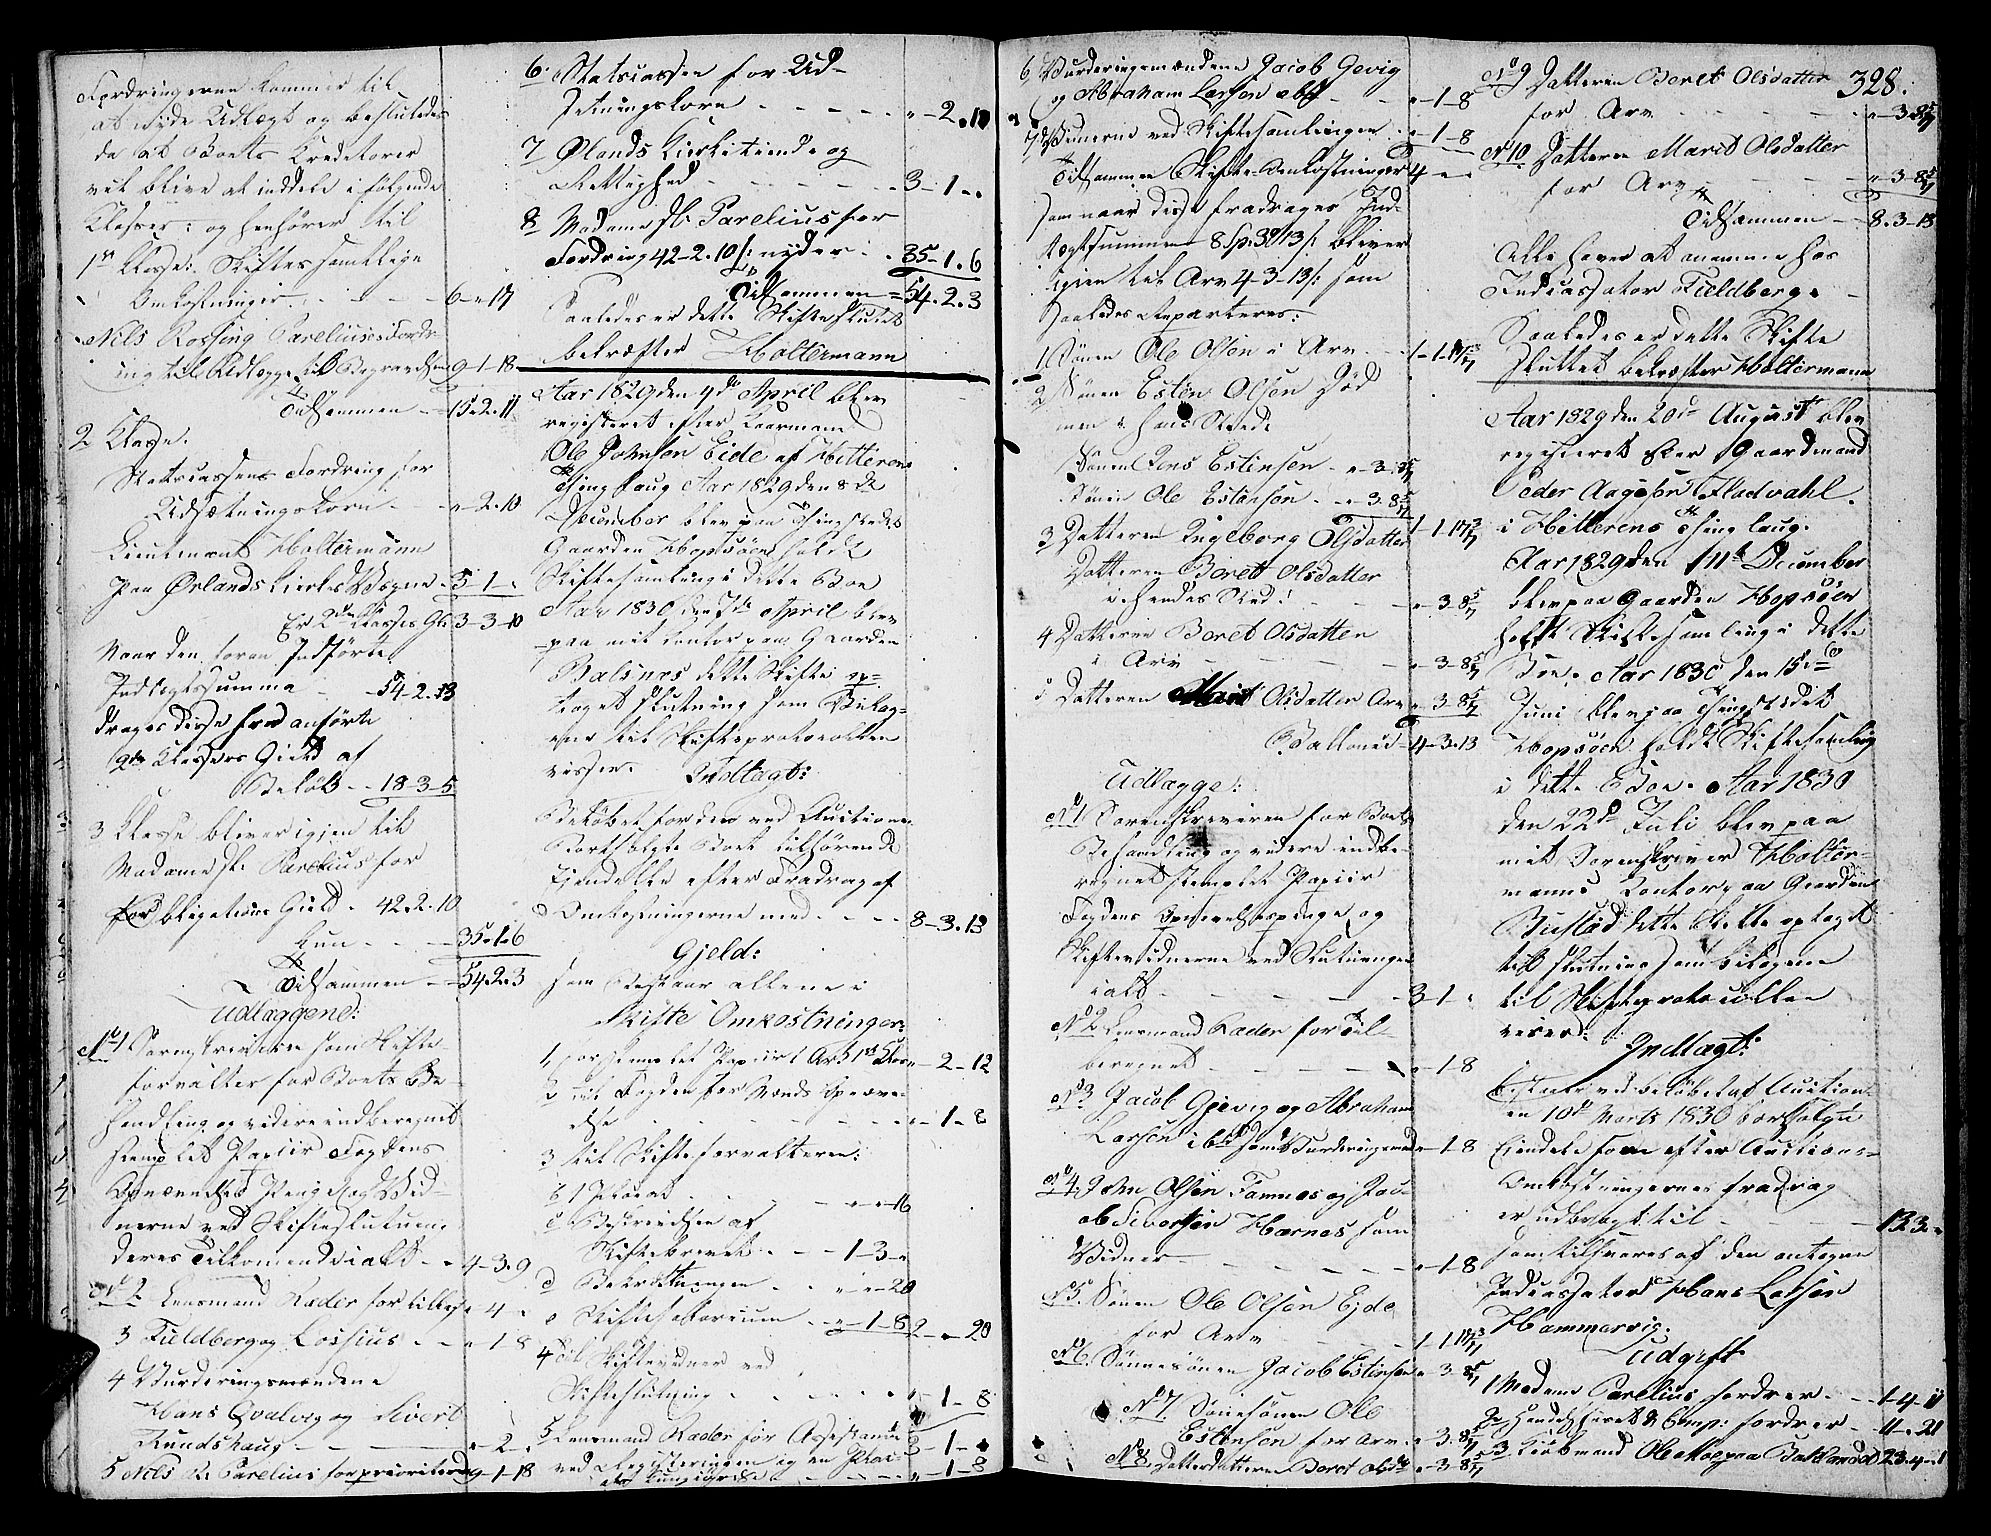 Fordringerne kommer til
at nyde Udlægt og besluttedes
da at Boets Kreditorer
vil blive at inddele i følgende
Klasser: og henhører til
1ste Klasse: Skiftes samtlige
Omkostninger - - - 6 - " 17
Nils Rossing Parelius's Fordr-
ing til Udlægge til Begravelsen 9-1-18
Tilsammen - 15.2.11
2 Klasse.
Statscassens Fordring for
Udsætningskorn - - " 2.10
Lieutenant Holtermann
paa Ørlands Kirkes Vegne - 3-1-"
Er 2den Klasses Gl: 3-3-10
Naar den foran Indførte
Indtægtssumma - 54-2.13
drages disse her anførte
2de Klassers Gield af
Beløb - 18-3-5
3 Klasse bliver igjen til
Madame Sl. Parelius for
Obligations Gield - 42.2.10
Kun - - - 35.1.6
Tilsammen - 54.2.3
Udlæggene:
No 1 Sorenskriveren som Skifte-
forvalter for Boets Be-
handling og videre indberegnet
stemplet Papiir Fogdens
Opnævnelses Penge og Vid-
nerne ved Skifteslutning
deres Tilkommende i alt - 4-3.9
No 2. Lensmand Rader for tillagt " 4 "
3 Fieldberg og Lossius - - " 1 8
4 Vurderingsmændene
Hans Qvalvig og Sivert
Rundshaug - - " 2 "
5 Nils R. Parelius for prioriteret 9-1-18
6. Statscassen for Ud-
sætningskorn - - - - " - 2.10
7 Ølands Kirketiende og
Rettighed - - - - 3-1-"
8 Madame Sl. Parelius for
Fordring 42-2.10 /: nyder - 35-1.6
Tilsammen = 54.2.3
Saaledes er dette Skifte sluttet
bekræfter Holtermann
Aar 1829 den 4de April blev
registeret efter Kaarmand
Ole Johnsen Eide af Hitterens
Thinglaug Aar 1829 den 8de
December blev paa Thingstedet
Gaarden Hopsøen holdt
Skiftesamling i dette Boe
Aar 1830 den 7de April blev
paa mit Contor paa Gaarden
Balsnes dette Skifte op-
taget slutning som Bielag-
ene til Skifteprotocollen
viser. Indtægt:
Beløbet for den ved Auctionen
Bortsolgte Boet tilhørende
Ejendele efter Fradrag af
Omkostningerne med - - - 8-3.13
Gjeld:
som Bestaar allene i
Skifte Omkostninger:
1, for stemplet Papiir 1 Ark 1ste Klasse " - 2-12
2 til Fogden for Mænds Opnævn-
else - - - - " - 1-8
3 til Skifteforvalteren:
b 1 Placat - - - " " 16
c Beskrivelsen af
Skiftebrevet - - 1-3-"
d Bekræftningen - - " - " - 20
e Skiftesalarium - - " - 1-8 2 - " - 20
4 til Skiftevidner ved
Skifteslutning - - - " - 1-8
5 Lensmand Rader for Assistance 3-1-"
ved Registeringen og en Placat
" - 1-8
6 Vurderingsmændene Jacob Gevig
og Abraham Larsen 16ß - - " - 1-8
7, Vidnerne ved Skiftesamlingen " - 1-8
Tilsammen Skifte-Omkostninger 4 " "
som naar disse fradrages Ind-
tægtssummen 8 Sp. 3 13/: bliver
igien til Arv 4-3-13/: som
saaledes Reparteres:
1 Sønen Ole Olsen i Arv - - 1-1-17 3/7
2 Sønen Esten Olsen Død
men i hans Sted:
Sønen Jens Estensen - " 3-8 5/7
Sønen Ole Estensen - " 3 8 5/7
3 Datteren Ingeborg Olsdatter 1 1 17 3/7
Datteren Beret Olsdatter
i hendes Sted! - - " 3-8 5/7
4 Datteren Beret Olsdatter
i Arv - - - " 3-8 5/7
5 Datteren Marit Olsdatter Arv " 3-8 5/7
Ballancer 4-3-13
Udlægge:
No 1 Sorenskriveren for Boets
Behandling og videre indbe-
regnet stemplet Papiir
Fogdens Opnævnelsespenge og
Skiftevidnerne ved Slutningen
i alt - - - - 3-1-"
No 2 Lensmand Rader for til-
beregnet - - - " 1 8
No 3 Jacob Gjevig og Abraham
Larsen 16ß som Vurderingsmænd " - 1 8
No 4 John Olsen Tamnes og Jac-
ob Sivertsen Hærnes som
Vidner - - - - " 1 8
No 5. Sønen Ole Olsen Ejde
for Arv - - 1 1 17 3/7
No 6. Sønnesønen Jacob Estensen " 3-8 5/7
No 7 Sønesønen Ole
Estensen for Arv " 3-8 5/7
No 8 Datterdatteren Beret Olsdtr " 3-8 5/7
328.
No 9 Datteren Beret Olsdatter
for Arv - - - - " 3-8 5/7
No 10 Datteren Marit Olsdatter
for Arv - - - " 3-8 5/7
Tilsammen - 8.3-13
Alle haver at annamme hos
Indcassator Fieldberg.
Saaledes er dette Skifte
sluttet bekræfter Holtermann
Aar 1829 den 20de August blev
registeret efter Gaardmand
Peder Aagesen Fladvahl
i Hitterens Thinglaug.
Aar 1829 den 11te December
blev paa Gaarden Hopsøen
holdt Skiftesamling i dette
Boe. Aar 1830 den 15de
Juni blev paa Thingstedet
Hopsøen holdt Skiftesamling
i dette Boe. Aar 1830
den 22de Juli blev paa
mit Sorenskriver Holter-
manns Kontor paa Gaarden
Bustad dette Skifte optaget
till slutning som bilagene
til Skifteprotocollen
viser:
Indtægt:
Bestaar ved beløbet af Auction-
en 10de Marts 1830 Forsolgte
Ejendele som efter Auctions-
Omkostningernes fradrag
er udbragt til - - 133.
som tilsvares af den antagne
Indcassator Hans Larsen
Hammervig.
Udgift
1 Madame Parelius fordrer - 1-4 11
2 Handelshuset & Comp: fordrer - 11 - 21
3 Kiøbmand Ole Moe paa Baklandet 23.4-1